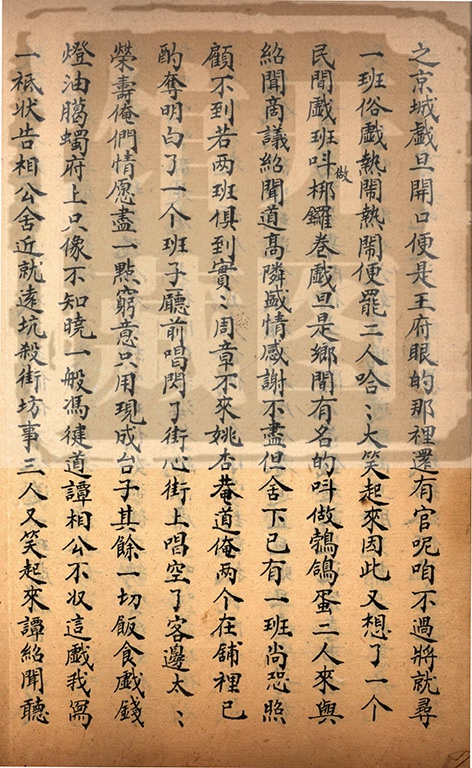 之京城戲旦開口便是王府眼的那裡還有官呢咱不過將就尋
一班俗戲熱鬧熱鬧便罷二人哈〻大笑起來因此又想了一个
民間戲班呌做梆鑼卷戲旦是鄉間有名的呌做鵓鴿蛋二人來與
紹聞商議紹聞道高隣盛情感謝不盡但舍下已有一班尚恐照
顧不到若两班俱到實〻周章不來姚杏菴道俺两个在舖裡已
酌奪明白了一个班子廳前唱閃了街心街上唱空了客邊太〻
榮壽俺們情愿盡一點窮意只用現成台子其餘一切飯食戲錢
燈油臈蠋府上只像不知曉一般馮健道譚相公不㳊這戲我寫
一祇狀告相公舍近就遠坑殺街坊事三人又笑起來譚紹聞聽